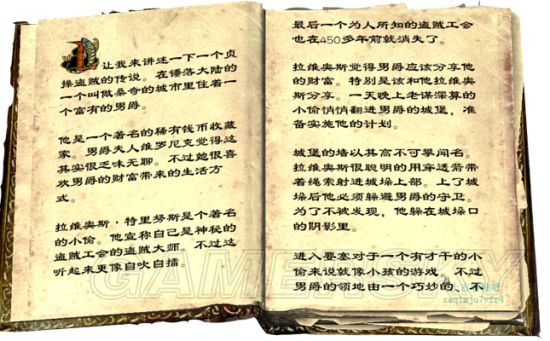 让我来讲述一下一个贞
操盗贼的传说。在锤落大陆的
一个叫做暴奇的城市里住着一
个富有的男爵。
他是一个著名的稀有钱币收藏
家。男爵夫人维罗尼克觉得这
其实很乏味无聊。不过她很喜
欢男爵的财富带来的生活方
式。
拉维奥斯·特里努斯是个著名
的小偷。他宣称自己是神秘的
盗贼工会的盗贼大师。不过这
听起来更像自吹自擂。
最后一个为人所知的盗贼工会
也在450多年前就消失了。
拉维奥斯觉得男爵应该分享他
的财富。特别是该和他拉维奥
斯分享。一天晚上老谋深算的
小偷悄悄翻进男爵的城堡，准
备实施他的计划。
城堡的墙以其高不可攀闻名。
拉维奥斯很聪明的用穿透箭带
着绳索射进城垛上部。上了城
垛后他必须躲避男爵的守卫。
为了不被发现，他躲在城垛口
的阴影里。
进入要塞对于一个有才干的小
偷来说就像小孩的游戏。不过
男爵的领地由一个巧妙的、不
GAMERSKY
zaq1mju7vfr4